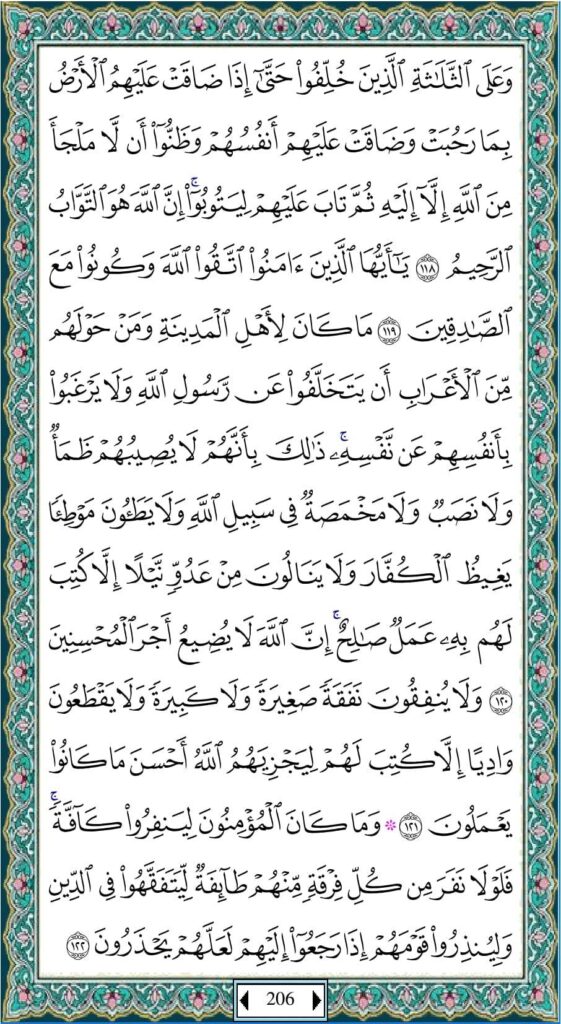 وَعَلَى ٱلثَّلَٰثَةِ ٱلَّذِينَ خُلِّفُوا۟ حَتَّىٰٓ إِذَا ضَاقَتْ عَلَيْهِمُ ٱلْأَرْضُ
بِمَا رَحُبَتْ وَضَاقَتْ عَلَيْهِمْ أَنفُسُهُمْ وَظَنُّوٓا۟ أَن لَّا مَلْجَأَ
مِنَ ٱللَّهِ إِلَّآ إِلَيْهِ ثُمَّ تَابَ عَلَيْهِمْ لِيَتُوبُوٓا۟ ۚ إِنَّ ٱللَّهَ هُوَ ٱلتَّوَّابُ
ٱلرَّحِيمُ ١١٨ يَٰٓأَيُّهَا ٱلَّذِينَ ءَامَنُوا۟ ٱتَّقُوا۟ ٱللَّهَ وَكُونُوا۟ مَعَ
ٱلصَّٰدِقِينَ ١١٩ مَا كَانَ لِأَهْلِ ٱلْمَدِينَةِ وَمَنْ حَوْلَهُم
مِّنَ ٱلْأَعْرَابِ أَن يَتَخَلَّفُوا۟ عَن رَّسُولِ ٱللَّهِ وَلَا يَرْغَبُوا۟
بِأَنفُسِهِمْ عَن نَّفْسِهِۦ ۚ ذَٰلِكَ بِأَنَّهُمْ لَا يُصِيبُهُمْ ظَمَأٌ
وَلَا نَصَبٌ وَلَا مَخْمَصَةٌ فِى سَبِيلِ ٱللَّهِ وَلَا يَطَـُٔونَ مَوْطِئًا
يَغِيظُ ٱلْكُفَّارَ وَلَا يَنَالُونَ مِنْ عَدُوٍّ نَّيْلًا إِلَّا كُتِبَ
لَهُم بِهِۦ عَمَلٌ صَٰلِحٌ ۚ إِنَّ ٱللَّهَ لَا يُضِيعُ أَجْرَ ٱلْمُحْسِنِينَ
١٢٠ وَلَا يُنفِقُونَ نَفَقَةً صَغِيرَةً وَلَا كَبِيرَةً وَلَا يَقْطَعُونَ
وَادِيًا إِلَّا كُتِبَ لَهُمْ لِيَجْزِيَهُمُ ٱللَّهُ أَحْسَنَ مَا كَانُوا۟
يَعْمَلُونَ ١٢١ * وَمَا كَانَ ٱلْمُؤْمِنُونَ لِيَنفِرُوا۟ كَآفَّةً ۚ
فَلَوْلَا نَفَرَ مِن كُلِّ فِرْقَةٍ مِّنْهُمْ طَآئِفَةٌ لِّيَتَفَقَّهُوا۟ فِى ٱلدِّينِ
وَلِيُنذِرُوا۟ قَوْمَهُمْ إِذَا رَجَعُوٓا۟ إِلَيْهِمْ لَعَلَّهُمْ يَحْذَرُونَ ١٢٢
206